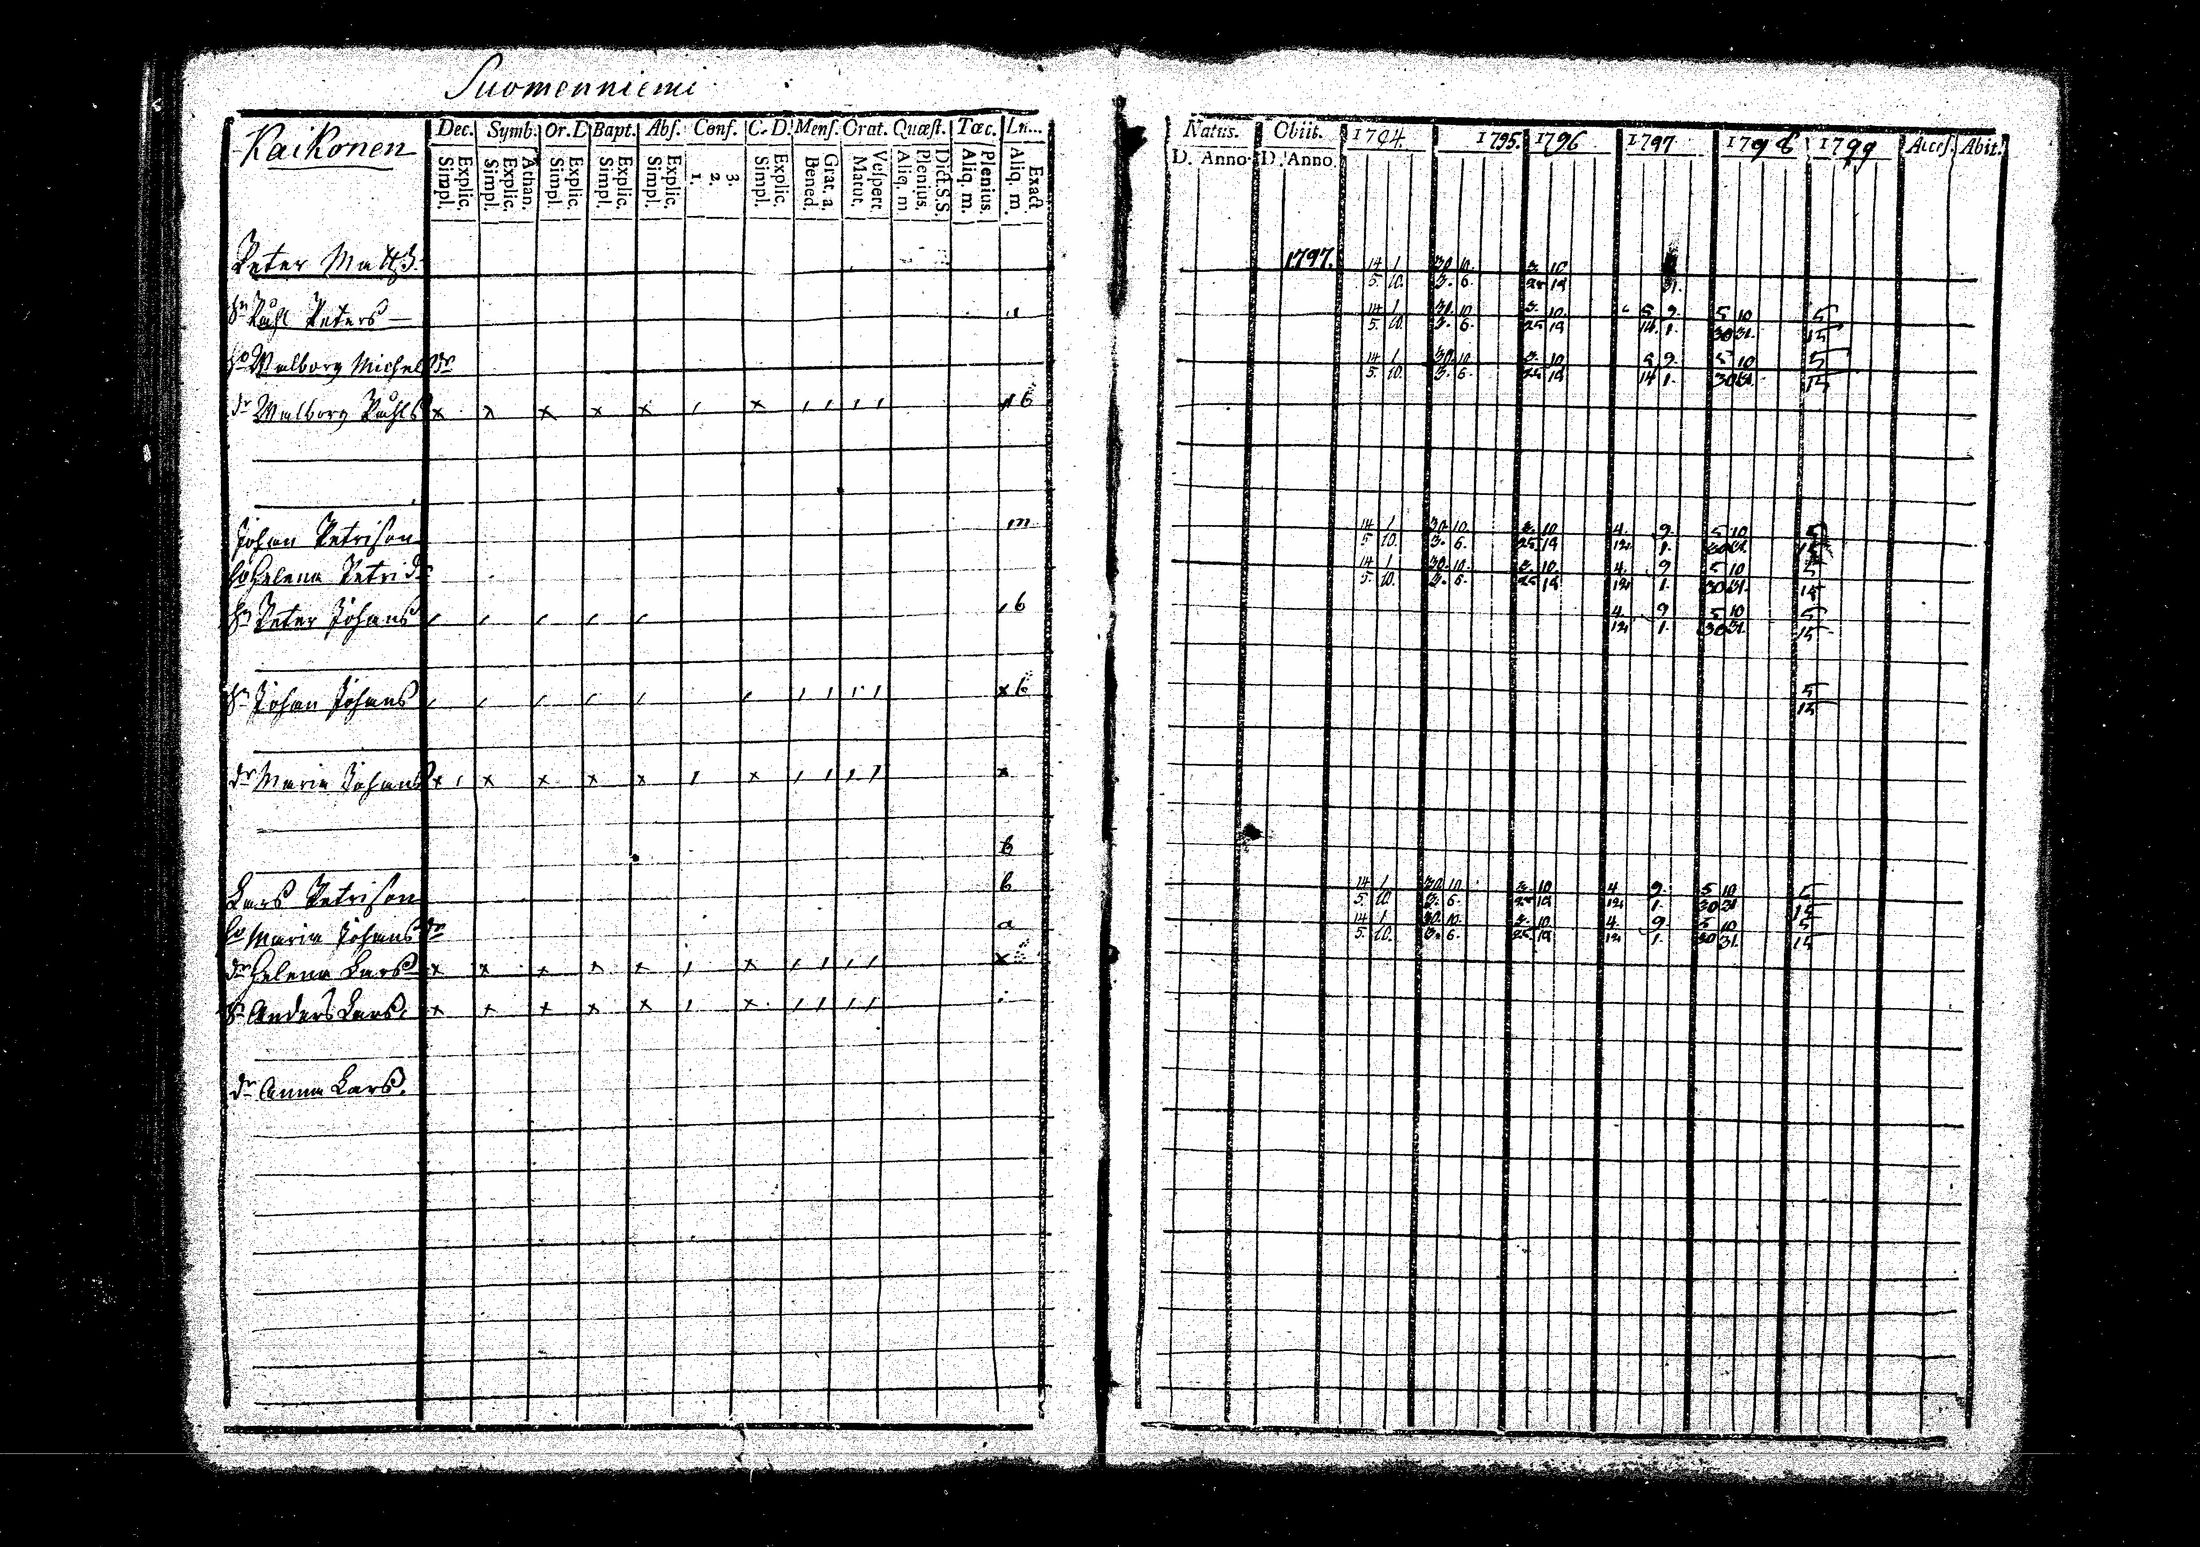 Suomenniemi
Kaikonen
Dec. Symb. Or. D Bapt. Abs. Conf. C. D. Mens. Orat. Quæst. Tœc.
Simpl. Explic. Simpl. Explic. Athan. Simpl. Explic. Simpl. Explic. Simpl. Explic. 1. 2. 3. Simpl. Explic. Bened. Grat. a. Matut. Vespert. Aliq. m Plenius. Dict. S.S. Aliq. m. Plenius. Aliq. m Exact
Natus. Obiit. 1794. 1795. 1796 1797 1798 1799 Acces. Abit.
D. Anno D. Anno.
Peter Matts. 1797. 14 1. 30 10. 3. 10
5. 10. 3. 6. 25 19 31.
sn Påhl Peters 14 1. 30. 10 3. 10. 5 9. 5 10 5
5. 10. 3. 6. 25 19 14. 1. 30 31. 15
ho Walborg Michelsdr 14 1. 30. 10. 3. 10 5 9. 5 10 5
5. 10. 3. 6. 25 19 14 1. 30 31. 15
dr Walborg Påhls x x x x x / x / / / / 6
Johan Petrison m 14 1. 30. 10. 3. 10 4. 9. 5 10 5
5. 10. 3. 6. 25 19 12. 1. 30 31. 15
ho Helena Petridr 14 1. 30. 10. 3. 10 4. 9 5 10 5
5. 10. 3. 6. 25 19 12. 1. 30 31. 15
sn Peter Johans / / / / / 6 4. 9 5 10 5
12. 1. 30 31. 15
sn Johan Johans / / / / / / / / / / x 6 5
15
dr Maria Johans x / x x x x / x / / / / x
6
Lars Petrison 6 14 1. 30 10. 3. 10 4 9. 5 10 5
5. 10. 3. 6. 25 19 12. 1. 30 31 15
ho Maria Johansdr a 14 1. 30. 10. 3. 10. 4. 9. 5 10 5
5. 10. 3. 6. 25. 19 12. 1. 30 31. 15
dr Helena Lars x x x x x / x / / / / x
sn Anders Lars. x x x x x / x / / / /
dr Anna Lars.